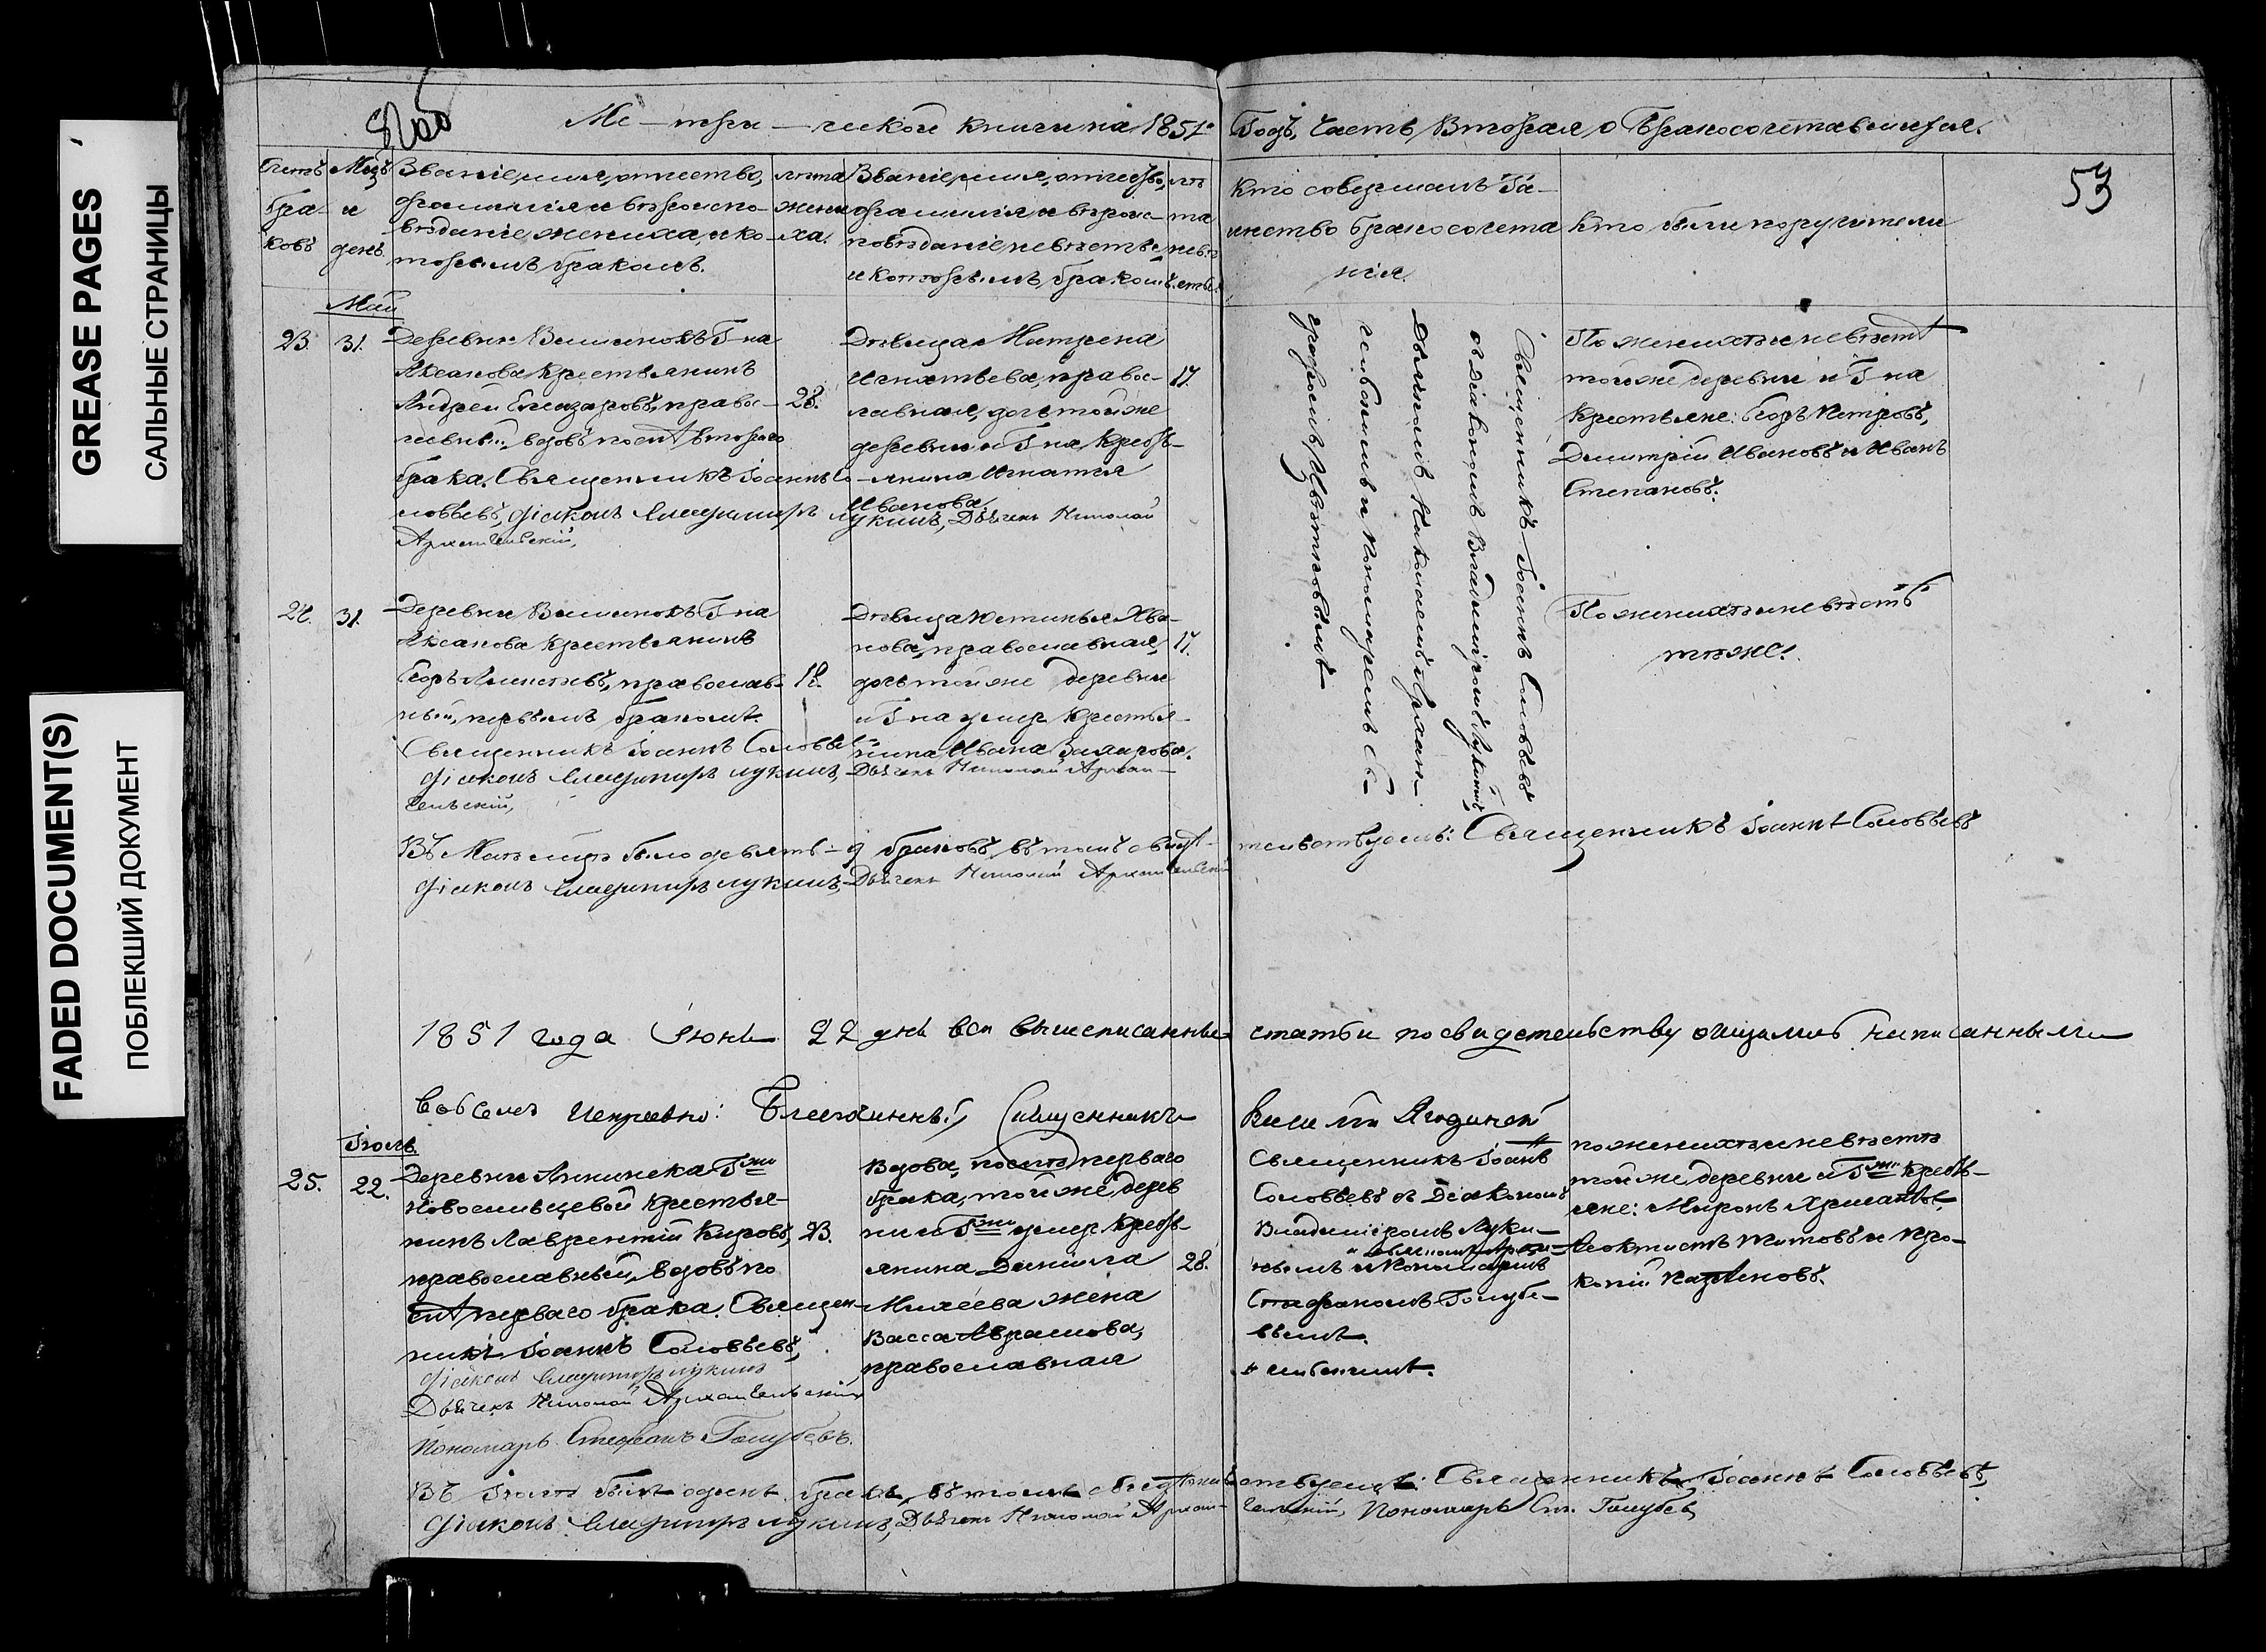 GREASE PAGES
САЛЬНЫЕ СТРАНИЦЫ
FADED DOCUMENT(S)
ПОБЛЕКШИЙ ДОКУМЕНТ
Ме – три – ческой книги на 1851й Годъ, Часть Вторая о Бракосочетавшихся.
53
Счетъ браковъ
Мсцъ и день
Званіе, имя, отчество,
фамилія и вѣроиспо-
вѣданіе жениха, и ко-
торымъ бракомъ.
лѣта жениха.
Званіе, имя, отчество,
фамилія и вѣроис-
повѣданіе невѣсты,
и которымъ бракомъ.
лѣта невѣсты.
Кто совершалъ Та-
инство бракосочета
нія.
Кто были поручители
Май
23. 31.
Деревни Г-на
Аксакова крестьянинъ
Андрей Елизаровъ, правос-
лавный, вдовъ послѣ втораго
брака. Священникъ Іоаннъ Со-
ловьевъ, діаконъ Владимиръ Лукинъ, Дьячекъ Николай
Архангельскій,
28.
Дѣвица Матрена
Игнатьева, правос-
лавная, дочь той же
деревни и Г-на Кресть-
янина Игнатія
Иванова.
17.
Священникъ Іоаннъ Соловьевъ
съ діакономъ Владиміромъ Лукинымъ,
Дьячкомъ Николаемъ Архан-
гельскимъ и Пономаремъ С.
По женихѣ и невѣстѣ
той же деревни и Г-на
Крестьяне: Егоръ Петровъ,
Димитрій Ивановъ и Иванъ
Степановъ.
24. 31.
Деревни Г-на
Аксакова крестьянинъ
Егоръ православ-
ный, первымъ бракомъ.
Священникъ Іоаннъ Соловьевъ
діаконъ Владимиръ Лукинъ, Дьячекъ Николай Архан-
гельскій,
18.
Дѣвица Устинья Ива-
нова, православная,
дочь той же деревни
и Г-на умер. Крестья-
нина Ивана Захарова.
17.
По женихѣ и невѣстѣ
тѣже.
Въ Маѣ мсцѣ было девять – 9 браковъ, въ томъ свидѣтельствуемъ: Священникъ Іоаннъ Соловьевъ
діаконъ Владимиръ Лукинъ Дьячекъ Николай Архангельскій
1851 года Іюня 22 дня всѣ вышеписанныя статьи по свидѣтельству написанными
во всемъ исправно: Благочинный Священникъ Ягодинскій
Іюль
25. 22.
Деревни Аннинска Гжи
Новосильцевой крестья-
нинъ Лаврентій Кировъ,
православный, вдовъ по
слѣ перваго брака. Священ-
никъ Іоаннъ Соловьевъ,
діаконъ Владимиръ Лукинъ
Дьячекъ Николай Архангельскій
Пономарь Стефанъ Голубевъ.
23.
Вдова, послѣ перваго
брака, той же дерев
ни и Гжи умер. Кресть
янина Даніила
Михеева жена
Васса Аврамова,
православная
28.
Священникъ Іоаннъ
Соловьевъ съ Діакономъ
Владиміромъ Луки-
нымъ и Пономаремъ
Стефаномъ Голубе-
вымъ.
по женихѣ и невѣстѣ
той же деревни и Гжи Кресть-
яне: Миронъ
Титовъ и Про-
копій
Въ Іюлѣ былъ одинъ бракъ, въ томъ свидѣтельствуемъ: Священникъ Іоаннъ Соловьевъ,
діаконъ Владимиръ Лукинъ, Дьячекъ Николай Архангельскій, Пономарь Ст. Голубев